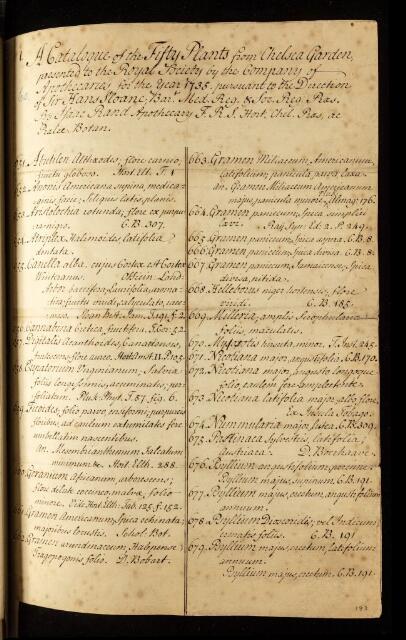 A Catalogue of the Fifty Plants from Chelsea Garden,
presented to the Royal Society by the Company of
Apothecaries for the Year 1735. pursuant to the Direction
of Sir Hans Sloane, Bart. Med. Reg. & Soc. Reg. Præs.
By Isaac Rand Apothecary F. R. S. Hort. Chel. Præf. ac
Prælec. Botan.
Abutilon Althæoides, flore carneo,
fructu globoso. Hort. Elt. T. 1
652. Anonis Americana supina, medicaginis
facie; siliquis latis planis.
653. Aristolochia rotunda; flore ex purpura
nigro. C.B. 307.
Atriplex Halimoides latifolia
dentata.
655. Canella alba. cujus Cortex est Cortex
Winteranus. Officin. Lond.
Arbor baccifera, laurifolia, aromatica
fructu viridi, calyculato, racemoso.
Sloan Hist. Jam.
656. Cannabina Cretica, fructifera. T. Cor. 52.
657. Digitalis Acanthoides, Canariensis,
frutescens, flore aureo. Hort. Amst. II. P. 105.
658. Eupatorium Virginianum, Salviæ
foliis longissimis, acuminatis, perfoliatum.
Pluk. Phyt. T. 87. fig. 6.
folio parvo,
floribus, ad caulium extremitates fere
umbellatim nascentibus.
An Mesembrianthemum Falcatum
minimum &c. Hort. Elth. 288.
Geranium Africanum arborescens;
flore coccineo, malvæ folio
minore. Hort. Elth. Tab. 125. f. 152.
Gramen Americanum, spica echinata;
majoribus locustis. Schol. Bot.
662. Gramen arundinaceum, Halepense
Tragopogonis folio. D. Bobart.
663. Gramen Miliaceum Americanum
latifolium; panicula parva laxa.
an Gramen Miliaceum Americanum
majus, panicula minore. Almag. 176.
664. Gramen paniceum, spica simplici
lævi. Raij Syn. Ed. 2. P. 249.
665. Gramen paniceum, spica aspera. C.B. 8.
666. Gramen paniceum, spica divisa. C.B. 8.
667. Gramen paniceum, Jamaicense, spica
divisa, nitida.
668. Helleborus niger hortensis, flore
viridi. C.B. 185.
669. Milleria, amplis Scrophulariæ
foliis, maculatis.
670. hirsuta minor. T. Inst. 245.
671. Nicotiana major, angustifolia. C.B. 170.
672. Nicotiana major, angusto longoque
folio, caulem fere amplectente
673. Nicotiana latifolia major, albo flore,
Ex Insula Tobago.
674. Nummularia major, lutea. C.B. 309.
675. Pastinaca Sylvestris, latifolia,
Austriaca. D. Boerhave.
676. Psyllium angustifolium, procumbens
Psyllium majus, supinum. C.B. 191.
677. Psyllium majus, erectum, angustifolium
annuum.
678. Psyllium Dioscoridis, vel Indicum
crenatis foliis. C.B. 191.
679. Psyllium majus, erectum, latifolium
annuum.
Psyllium majus, erectum. C.B. 191.
193